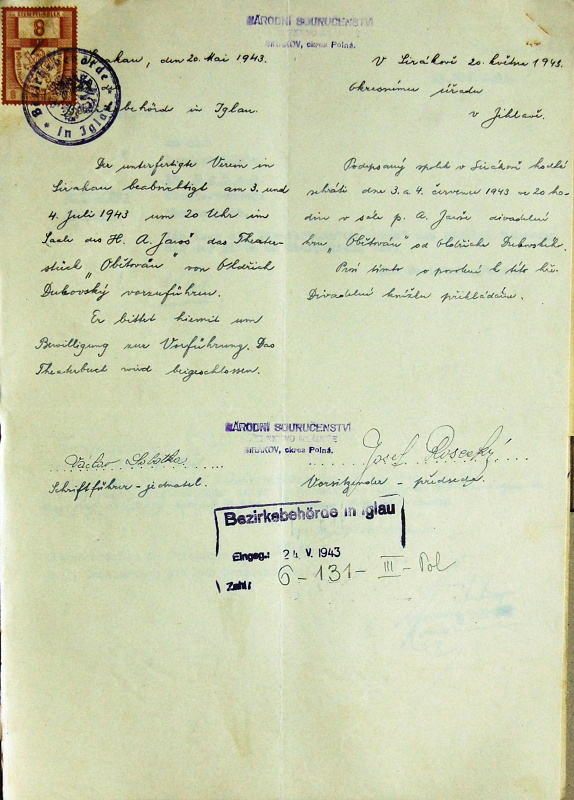 NÁRODNÍ SOURUČENSTVÍ
SIRÁKOV, okres Polná.
8
Sirakau, den 20. Mai 1943.
behörd in Iglau.
Der unterfertigte Verein in
Sirakau beabrichtigt am 3. und
4. Juli 1943 um 20 Uhr im
Saale des H. A. Jaroš das Theater-
stück „Obětován" von Oldřich
Dukovský vorzuführen.
Er bittet hiemit um
Bewilligung zur Vorführung. Das
Theaterbuch wird beigeschlossen.
V Sirákově 20. května 1943.
Okresnímu úřadu
v Jihlavě.
Podepsaný spolek v Sirákově hodlá
sehráti dne 3. a 4. července 1943 ve 20 ho-
din v sále p. A. Jaroše divadelní
hru „Obětován" od Oldřicha
Prosí tímto o povolení k této hře.
Divadelní knížku přikládáme.
NÁRODNÍ SOURUČENSTVÍ
SIRÁKOV, okres Polná.
Václav Sobotka
Schriftführer - jednatel.
Josef
Vorsitzender - předseda
Bezirksbehörde in Iglau
Eingeg.: 24. V. 1943
Zahl: 6-131-III-Pol